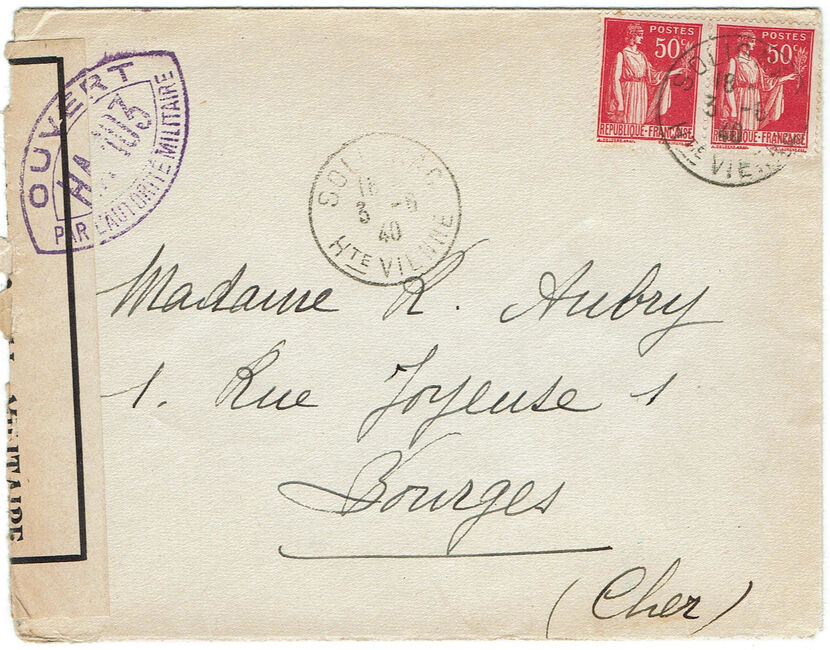 OUVERT
PAR L'AUTORITÉ MILITAIRE
POSTES
50c
RÉPUBLIQUE-FRANÇAISE
POSTES
50c
RÉPUBLIQUE-FRANÇAISE
18
3 -6
40
Hte VIENNE
3 -6
40
HTE VIENNE
Madame R. Aubry
1. Rue Joyeuse 1
Bourges
(Cher)